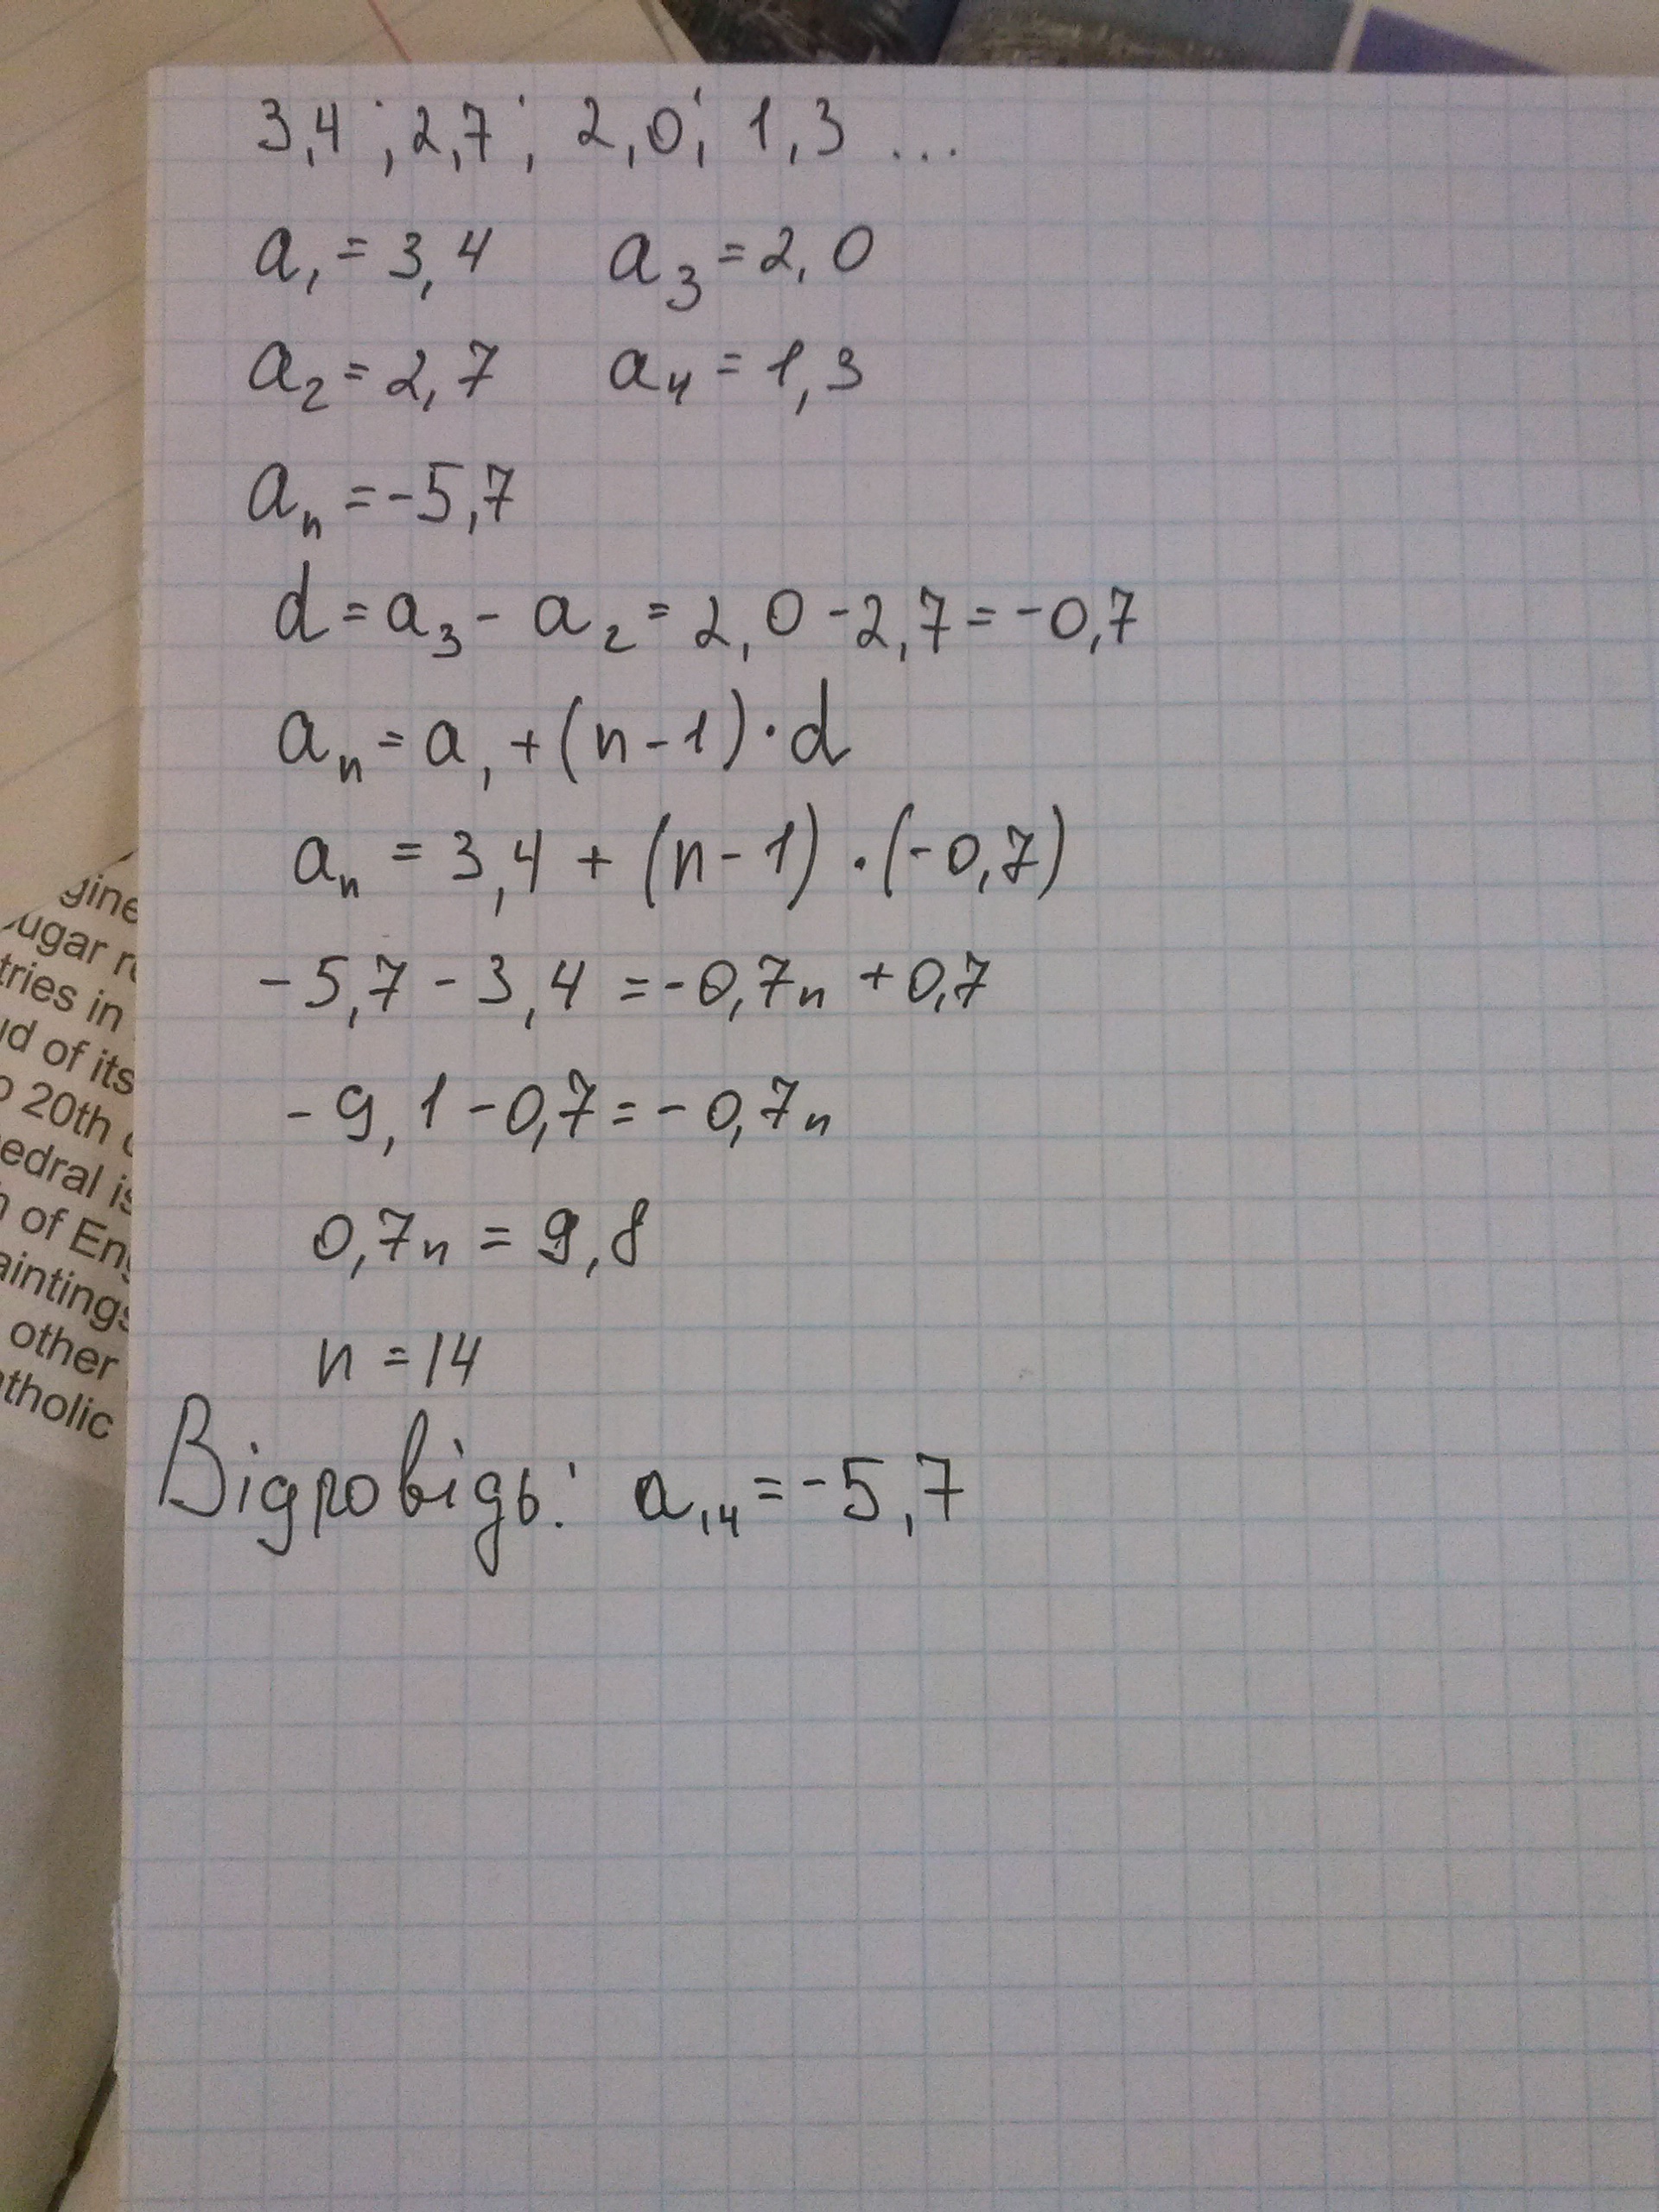 3,4; 2,7; 2,0; 1,3 ...
a₁ = 3,4 a₃ = 2,0
a₂ = 2,7 a₄ = 1,3
aₙ = -5,7
d = a₃ - a₂ = 2,0 - 2,7 = -0,7
aₙ = a₁ + (n-1)·d
aₙ = 3,4 + (n-1)·(-0,7)
-5,7 - 3,4 = -0,7n + 0,7
-9,1 - 0,7 = -0,7n
0,7n = 9,8
n = 14
Відповідь: a₁₄ = -5,7
gine
tries in
of its
20th
of
other